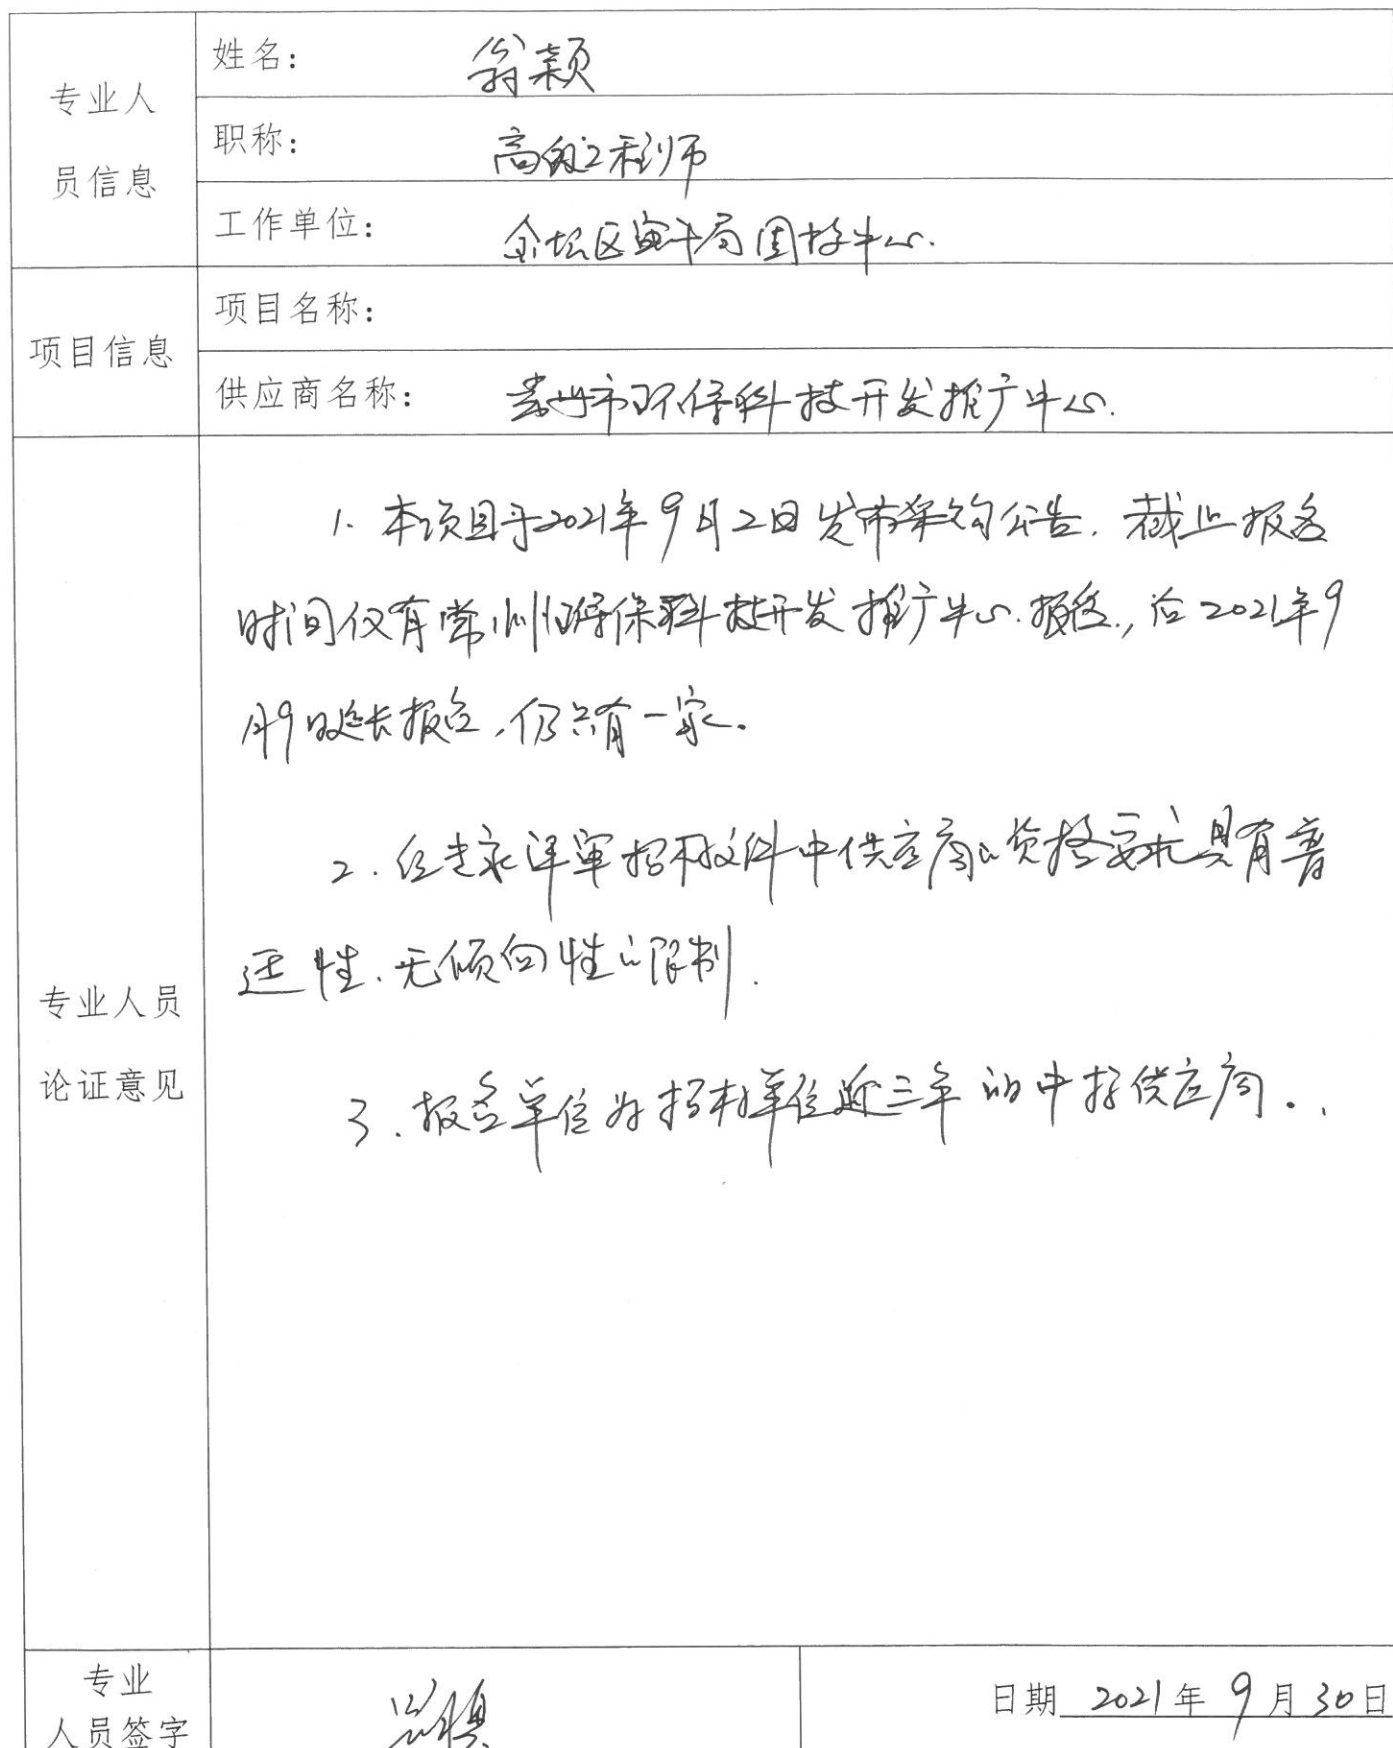 专业人
员信息
姓名： 翁颖
职称： 高级工程师
工作单位： 金坛区审计局固投中心.
项目信息
项目名称：
供应商名称： 常州市环保科技开发推广中心.
专业人员
论证意见
1. 本项目于2021年9月2日发布采购公告. 截止报名
时间仅有常州环保科技开发推广中心.报名, 后2021年9
月9日延长报名,仍只有一家.
2. 经专家评审招标文件中供应商的资格要求具有普
适性.无倾向性的限制.
3. 报名单位为招标单位近三年的中标供应商.
专业
人员签字
翁颖
日期 2021年 9月30日